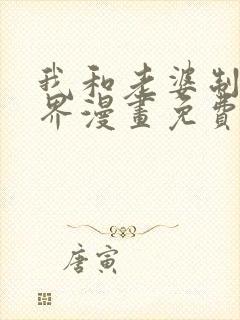 我和老婆制
界漫畫免費
唐寅